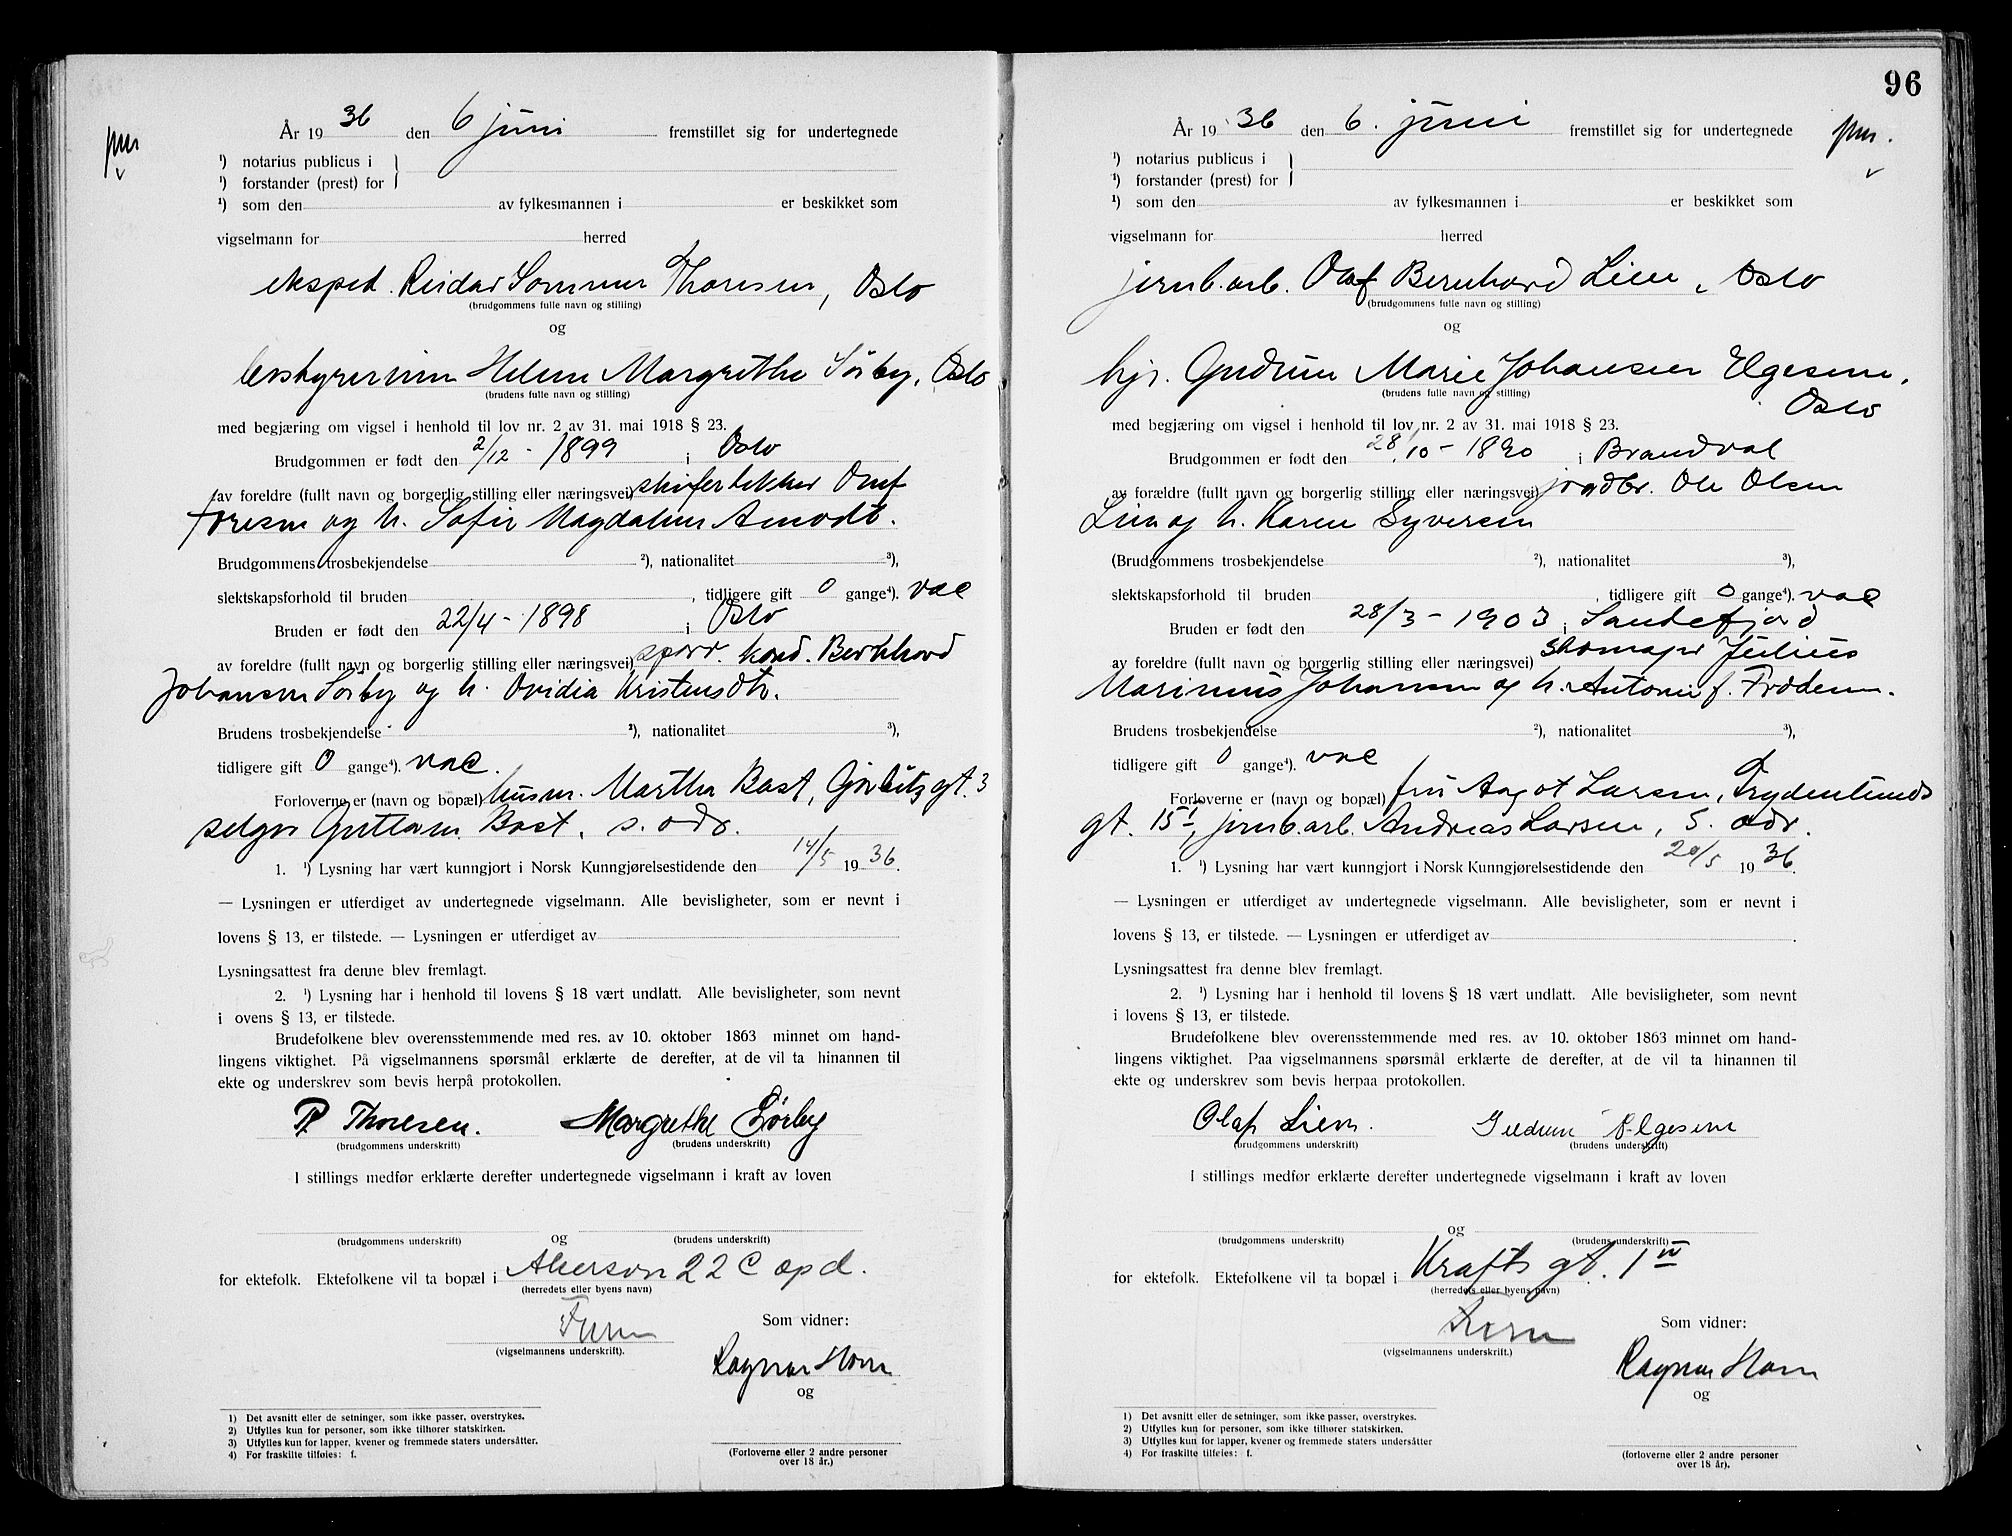 År 1936 den 6 juni fremstillet sig for undertegnede
¹) notarius publicus i
¹) forstander (prest) for
¹) som den av fylkesmannen i er beskikket som
vigselmann for herred
eksped. Reidar Sommer Thoresen, Oslo
(brudgommens fulle navn og stilling)
og
Helene Margrethe Sörby, Oslo
(brudens fulle navn og stilling)
med begjæring om vigsel i henhold til lov nr. 2 av 31. mai 1918 § 23.
Brudgommen er født den 2/12 - 1899 i Oslo
av foreldre (fullt navn og borgerlig stilling eller næringsvei) skifertekker Oluf
Toresen og h. Sofie Magdalene Amodt.
Brudgommens trosbekjendelse ²), nationalitet ³),
slektskapsforhold til bruden , tidligere gift 0 gange⁴). vac
Bruden er født den 22/4 - 1898 i Oslo
av foreldre (fullt navn og borgerlig stilling eller næringsvei) sporv. kond. Bernhard
Johansen Sörby og h. Ovidia Kristensdtr.
Brudens trosbekjendelse ²), nationalitet ³),
tidligere gift 0 gange⁴). vac.
Forloverne er (navn og bopæl) husm. Martha Bast, Gørbitzgt. 3
selger Bast, s. adr.
1. ¹) Lysning har vært kunngjort i Norsk Kunngjørelsestidende den 14/5 1936.
— Lysningen er utferdiget av undertegnede vigselmann. Alle bevisligheter, som er nevnt i
lovens § 13, er tilstede. — Lysningen er utferdiget av
Lysningsattest fra denne blev fremlagt.
2. ¹) Lysning har i henhold til lovens § 18 vært undlatt. Alle bevisligheter, som nevnt
i ovens § 13, er tilstede.
Brudefolkene blev overensstemmende med res. av 10. oktober 1863 minnet om hand-
lingens viktighet. På vigselmannens spørsmål erklærte de derefter, at de vil ta hinannen til
ekte og underskrev som bevis herpå protokollen.
R Thoresen. Margrethe Sørby
(brudgommens underskrift) (brudens underskrift)
I stillings medfør erklærte derefter undertegnede vigselmann i kraft av loven
og
(brudgommens underskrift) (brudens underskrift)
for ektefolk. Ektefolkene vil ta bopæl i Akersvn 22 C opd.
(herredets eller byens navn)
Som vidner:
(vigselmannens underskrift).
Ragnar Horn
og
1) Det avsnitt eller de setninger, som ikke passer, overstrykes.
2) Utfylles kun for personer, som ikke tilhører statskirken.
3) Utfylles kun for lapper, kvener og fremmede staters undersåtter.
4) For fraskilte tilføies: f.
(Forloverne eller 2 andre personer
over 18 år.)
96
År 1936 den 6. juni fremstillet sig for undertegnede
¹) notarius publicus i
¹) forstander (prest) for
¹) som den av fylkesmannen i er beskikket som
vigselmann for herred
jernb.arb. Olaf Bernhard Lien, Oslo
(brudgommens fulle navn og stilling)
og
hjr. Gudrun Marie Johansen Elgesem,
(brudens fulle navn og stilling)
Oslo
med begjæring om vigsel i henhold til lov nr. 2 av 31. mai 1918 § 23.
Brudgommen er født den 28/10 - 1890 i Brandval
av forældre (fullt navn og borgerlig stilling eller næringsvei) jordbr. Ole Olsen
Lien og h. Karen Syversen
(Brudgommens trosbekjendelse ²), nationalitet ³),
slektskapsforhold til bruden , tidligere gift 0 gange⁴). vac
Bruden er født den 28/3 - 1903 i Sandefjord
av foreldre (fullt navn og borgerlig stilling eller næringsvei) skomager Julius
Marinius Johansen og h. Antonie f. Frodesen.
Brudens trosbekjendelse ²), nationalitet ³),
tidligere gift 0 gange⁴). vac
Forloverne er (navn og bopæl) fru Aagot Larsen, Frydenlunds
gt. 15 I, jernb.arb. Andreas Larsen, s. adr.
1. ¹) Lysning har vært kunngjort i Norsk Kunngjørelsestidende den 20/5 1936.
— Lysningen er utferdiget av undertegnede vigselmann. Alle bevisligheter, som er nevnt i
lovens § 13, er tilstede. — Lysningen er utferdiget av .
Lysningsattest fra denne blev fremlagt.
2. ¹) Lysning har i henhold til lovens § 18 vært undlatt. Alle bevisligheter, som nevnt
i lovens § 13, er tilstede.
Brudefolkene blev overensstemmende med res. av 10. oktober 1863 minnet om hand-
lingens viktighet. Paa vigselmannens spørsmål erklærte de derefter, at de vil ta hinannen til
ekte og underskrev som bevis herpaa protokollen.
Olaf Lien. Gudrun Elgesem
(brudgommens underskrift) (brudens underskrift)
I stillings medfør erklærte derefter undertegnede vigselmann i kraft av loven
og
(brudgommens underskrift) (brudens underskrift)
for ektefolk. Ektefolkene vil ta bopæl i Krafts gt. 1 IV
(herredets eller byens navn)
Som vidner:
(vigselmannens underskrift.)
Ragnar Horn
og
1) Det avsnitt eller de setninger, som ikke passer, overstrykes.
2) Utfylles kun for personer, som ikke tilhører statskirken.
3) Utfylles kun for lapper, kvener og fremmede staters undersåtter
4) For fraskilte tilføies: f.
(forloverne eller 2 andre personer
over 18 år).